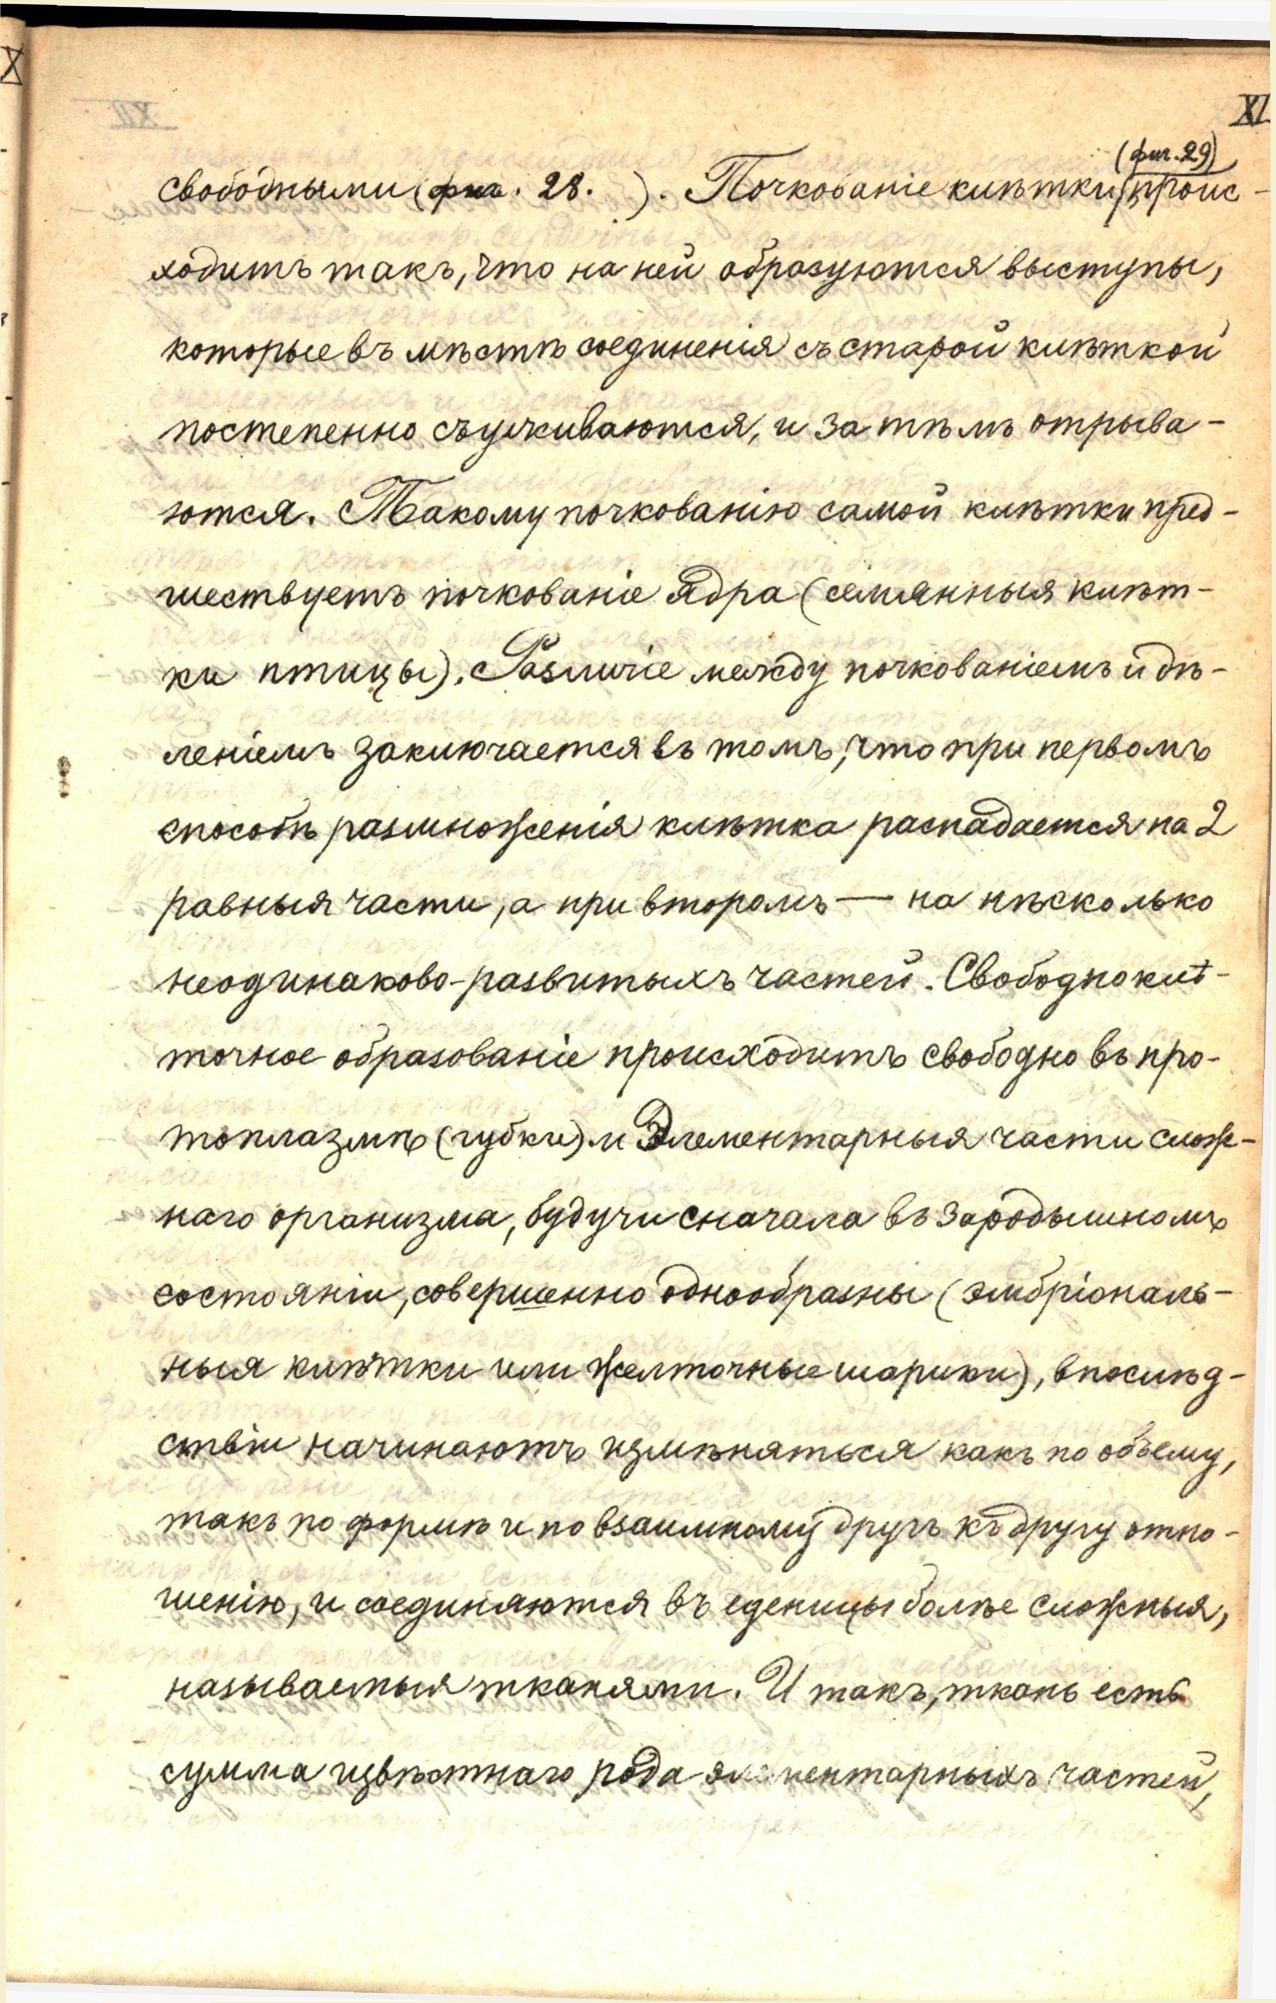 XI
(фиг. 29)
свободными (фиг. 28. ). Почкованіе клѣтки проис-
ходитъ такъ, что на ней образуются выступы,
которые въ мѣстѣ соединенія съ старой клѣткой
постепенно съуживаются, и затѣмъ отрыва-
ются. Такому почкованію самой клѣтки пред-
шествуетъ почкованіе ядра (семянныя клѣт-
ки птицы). Различіе между почкованіемъ и дѣ-
леніемъ заключается въ томъ, что при первомъ
способѣ размноженія клѣтка распадается на 2
равныя части, а при второмъ — на нѣсколько
неодинаково-развитыхъ частей. Свободноклѣ-
точное образованіе происходитъ свободно въ про-
топлазмѣ (губки) и Элементарныя части слож-
наго организма, будучи сначала въ зародышномъ
состояніи, совершенно однообразны (эмбріональ-
ныя клѣтки или желточные шарики), впослѣд-
ствіи начинаютъ измѣняться какъ по объему,
такъ по формѣ и по взаимному другъ къ другу отно-
шенію, и соединяются въ еденицы болѣе сложныя,
называемыя тканями. И такъ, ткань есть
сумма извѣстнаго рода элементарныхъ частей,